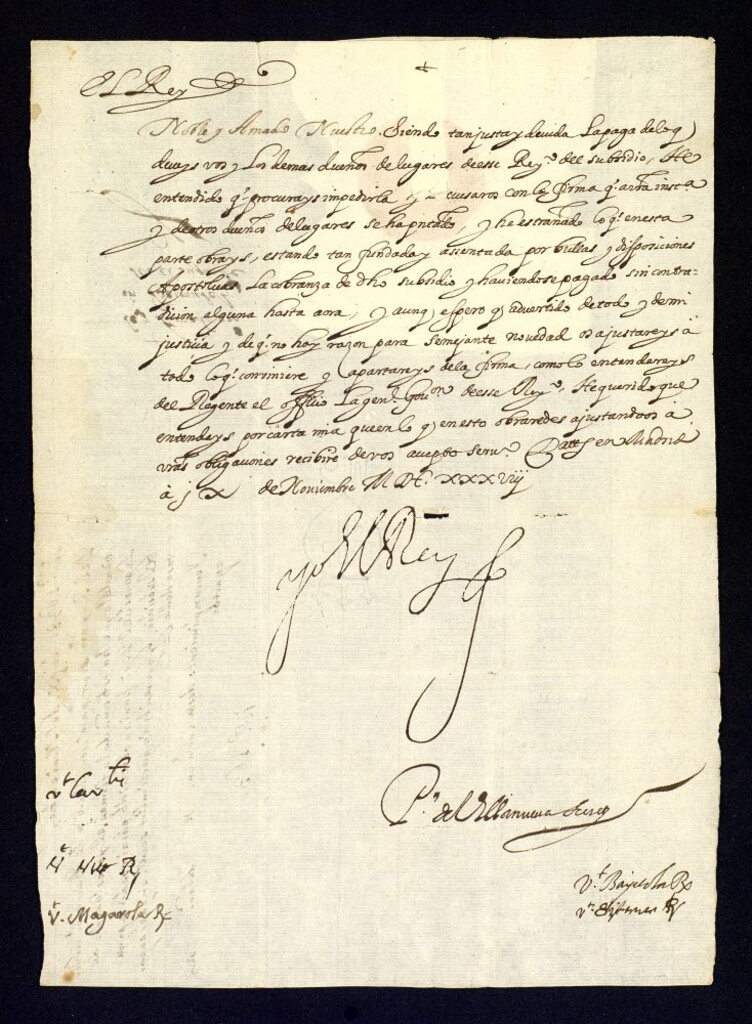 EL Rey
Noble y Amado Nuestro. Siendo tan justa y devida La paga de lo q
deveys vos y Los demas dueños de lugares desse Reyº del subsidio, He
entendido q procurays impedirla y escusaros con la firma q a instª
y de otros dueños de lugares se ha pntado, y he estrañado lo q en esta
parte obrays, estando tan fundada y assentada por bullas y disposiciones
Apostolicas La cobranza de dho subsidio y haviendose pagado sin contra-
dicion alguna hasta aora, y aunq espero q advertido de todo y de mi
justicia y de q no hay razon para semejante novedad os ajustareys à
todo lo q conviniere y apartareys de la firma, como lo entendereys
del Regente el officio La genl. Govon desse Reyº. He querido que
entendays por carta mia que en lo q en esto obraredes ajustandoos à
vras obligaciones recibire de vos accepto servº. Datt en Madrid
à jX de Noviembre M DC XXXVIIj
yo El Rey
Pº de Villanueva Secrº
vt Bayetola R
vt Magarola R